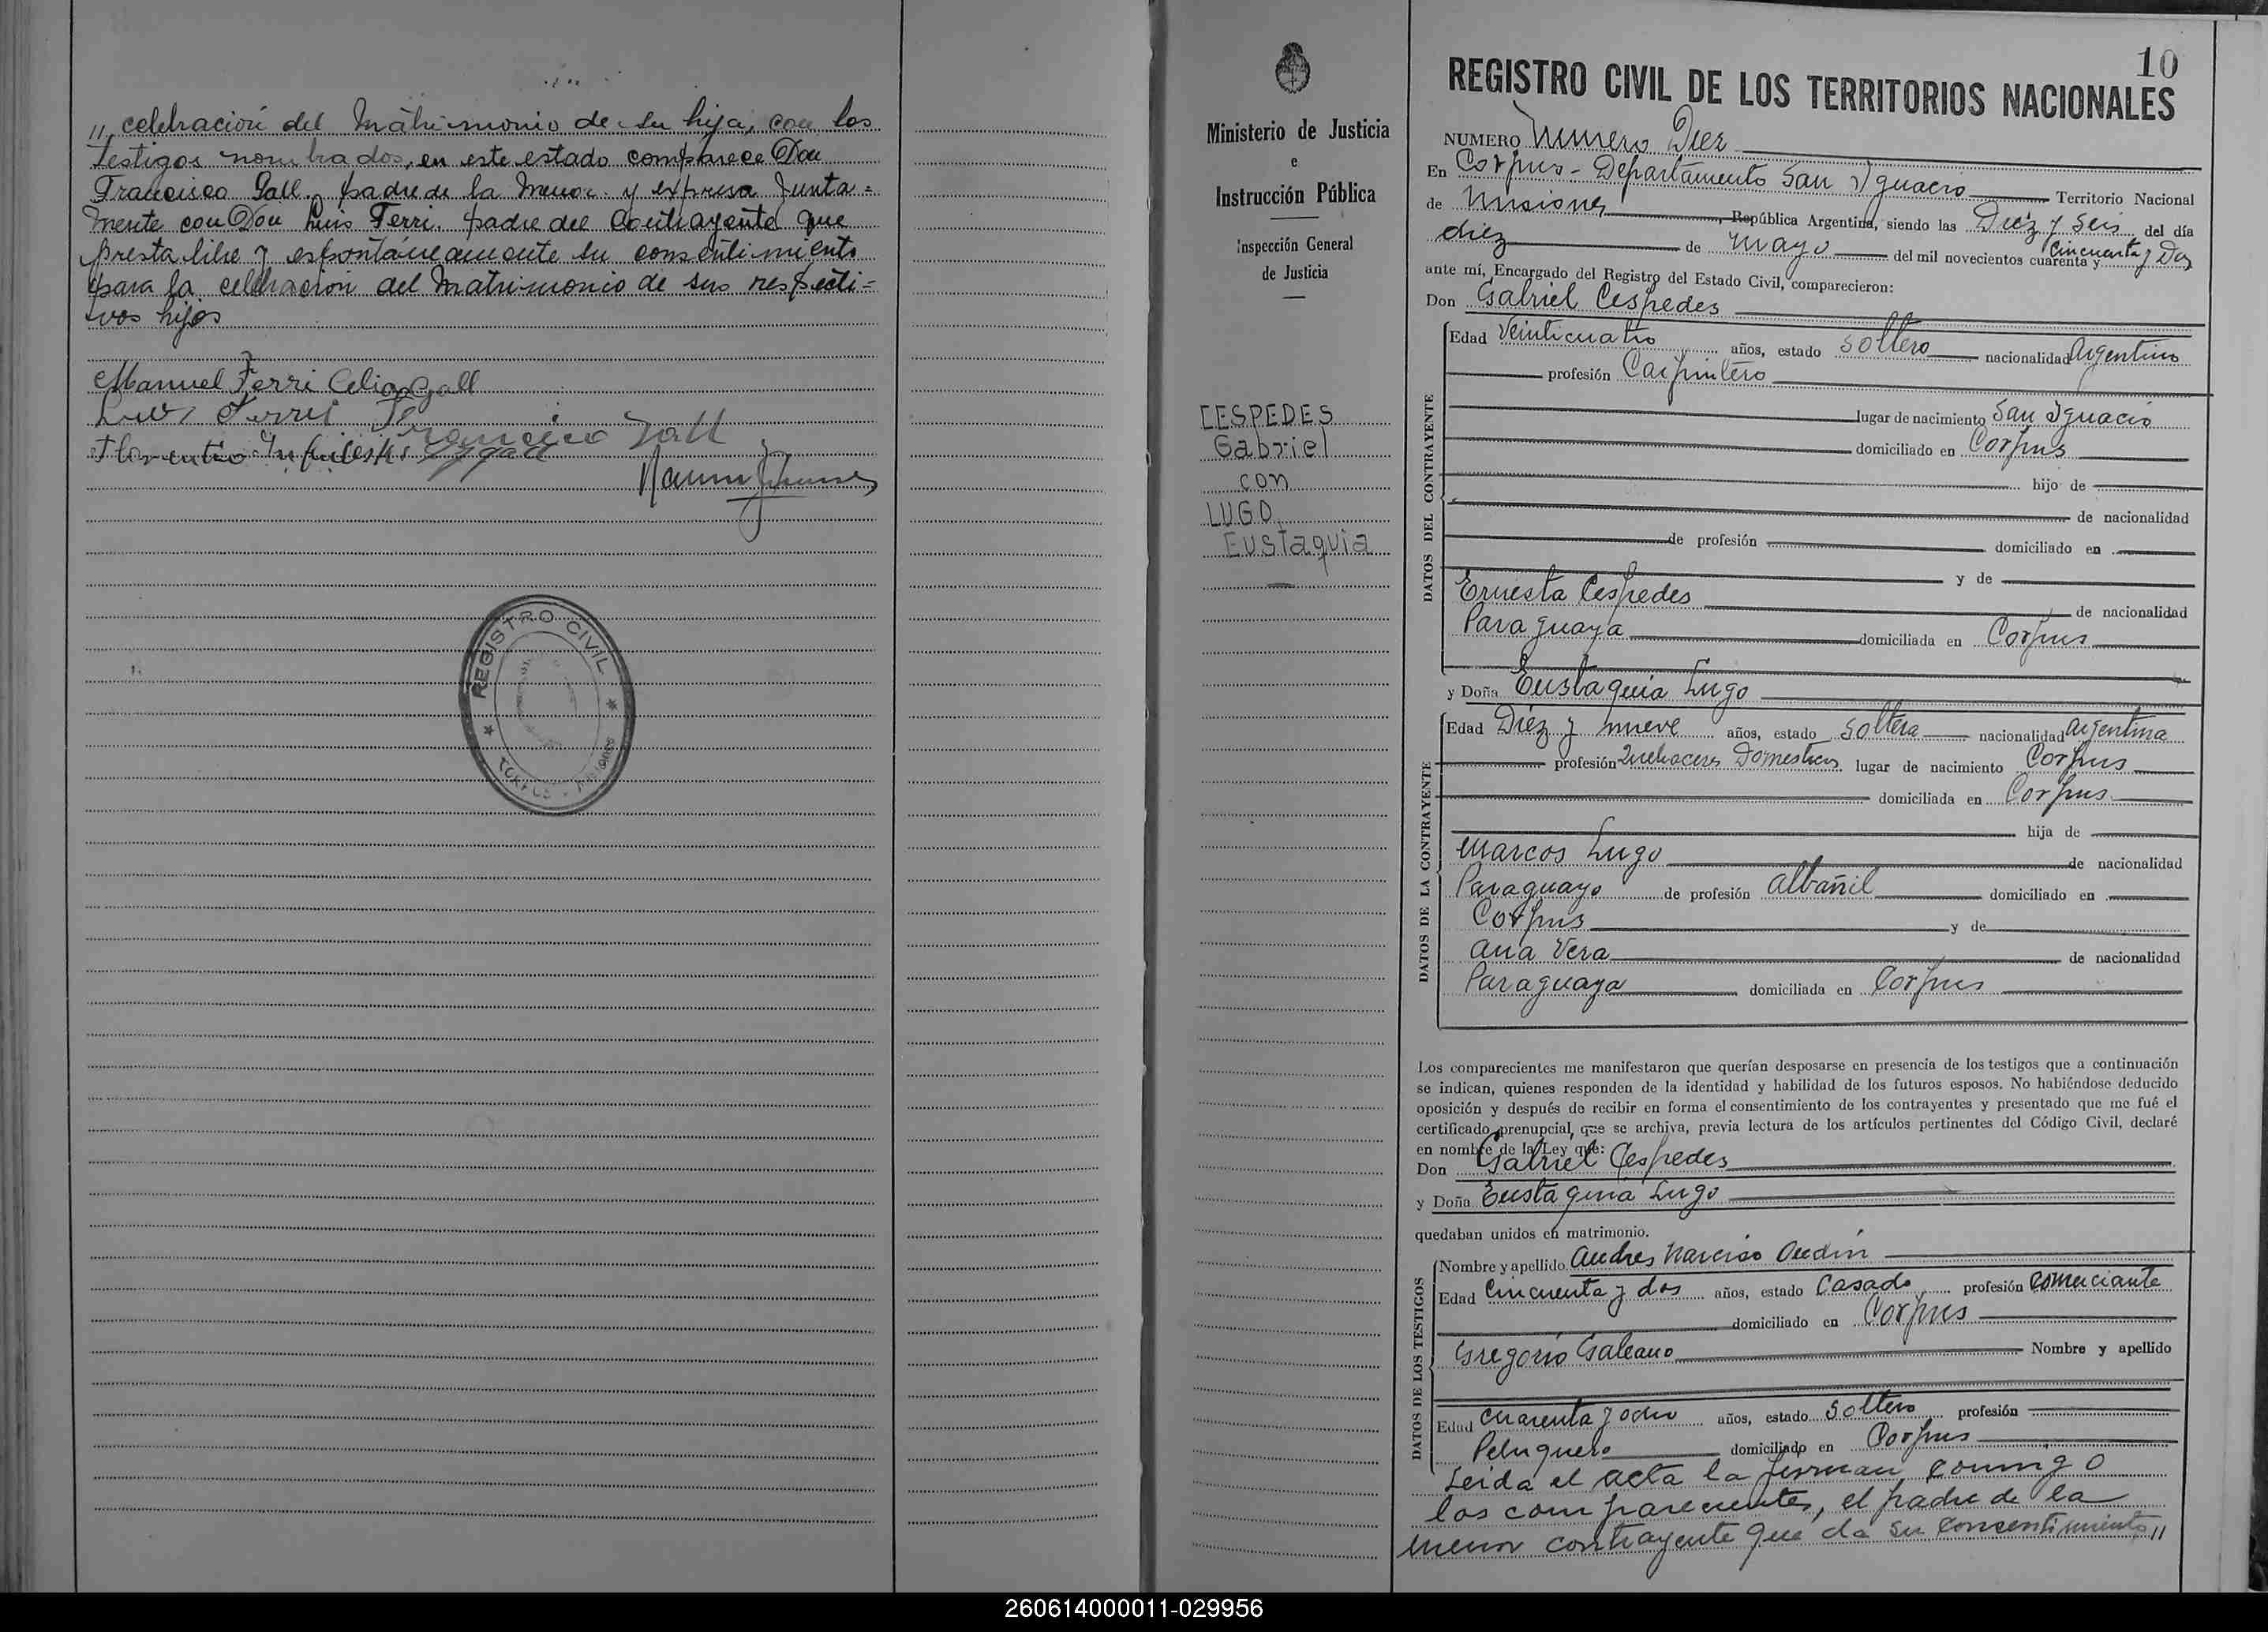 " celebración del Matrimonio de su hija, con los
testigos nombrados, en este estado comparece Don
Francisco Gall, padre de la Menor y expresa Junta=
mente con Don Luis Ferri, padre del Contrayente que
presta libre y espontáneamente su consentimiento
para la celebración del Matrimonio de sus respecti=
vos hijos
Manuel Ferri Celia Gall
Luis Ferri Francisco Gall
REGISTRO CIVIL
CORPUS - MISIONES
Ministerio de Justicia
e
Instrucción Pública
Inspección General
de Justicia
CESPEDES
Gabriel
con
LUGO
Eustaquia
10
REGISTRO CIVIL DE LOS TERRITORIOS NACIONALES
NUMERO Numero Diez
En Corpus - Departamento San Ignacio Territorio Nacional
de Misiones, República Argentina, siendo las Diez y Seis del día
diez de mayo del mil novecientos cuarenta y Cincuenta y Dos
ante mí, Encargado del Registro del Estado Civil, comparecieron:
Don Gabriel Cespedes
DATOS DEL CONTRAYENTE
Edad Veinticuatro años, estado Soltero nacionalidad Argentino
profesión Carpintero
lugar de nacimiento San Ignacio
domiciliado en Corpus
hijo de
de nacionalidad
de profesión domiciliado en
y de
Ernesta Cespedes de nacionalidad
Paraguaya domiciliada en Corpus
y Doña Eustaquia Lugo
DATOS DE LA CONTRAYENTE
Edad Diez y nueve años, estado Soltera nacionalidad Argentina
profesión Quehaceres Domesticos lugar de nacimiento Corpus
domiciliada en Corpus
hija de
Marcos Lugo de nacionalidad
Paraguayo de profesión albañil domiciliado en
Corpus y de
Ana Vera de nacionalidad
Paraguaya domiciliada en Corpus
Los comparecientes me manifestaron que querían desposarse en presencia de los testigos que a continuación
se indican, quienes responden de la identidad y habilidad de los futuros esposos. No habiéndose deducido
oposición y después de recibir en forma el consentimiento de los contrayentes y presentado que me fué el
certificado prenupcial, que se archiva, previa lectura de los artículos pertinentes del Código Civil, declaré
en nombre de la Ley que:
Don Gabriel Cespedes
y Doña Eustaquia Lugo
quedaban unidos en matrimonio.
DATOS DE LOS TESTIGOS
Nombre y apellido Andres Narciso Oudin
Edad Cincuenta y dos años, estado Casado profesión Comerciante
domiciliado en Corpus
Gregorio Galeano Nombre y apellido
Edad Cuarenta y ocho años, estado Soltero profesión
Peluquero domiciliado en Corpus
Leida el acta la firman conmigo
los comparecientes, el padre de la
menor contrayente que da su consentimiento "
260614000011-029956